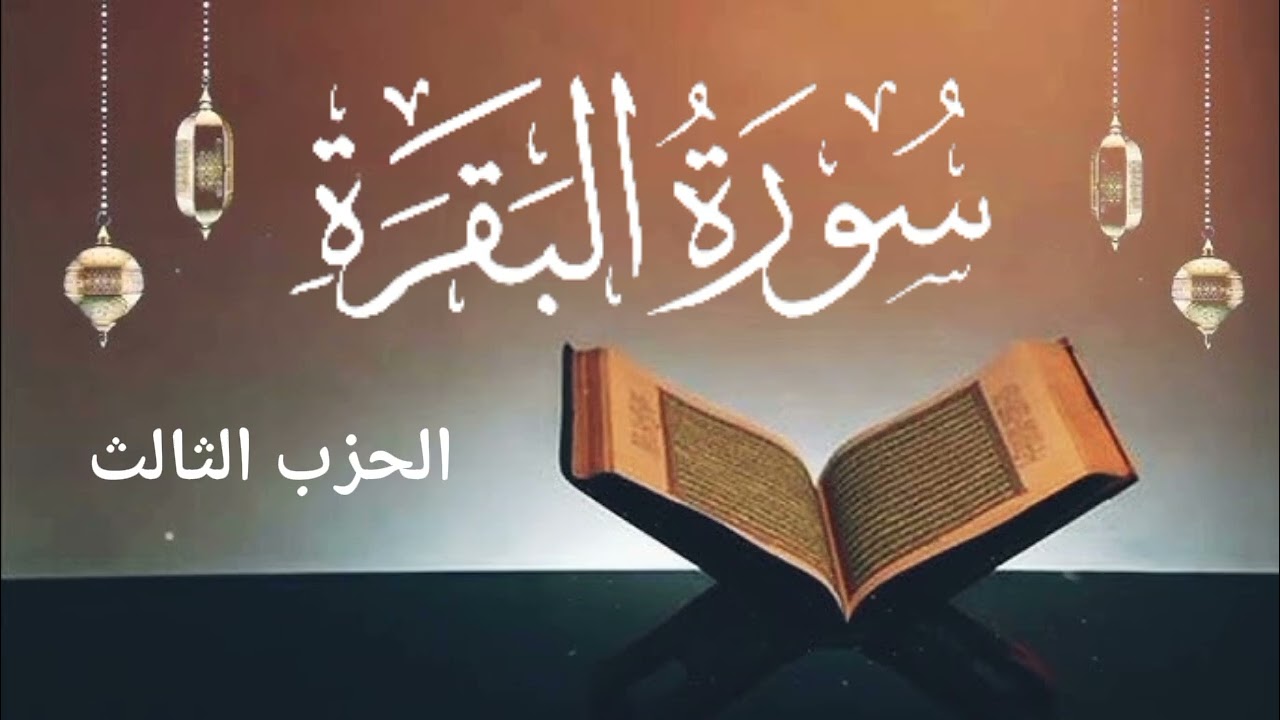 سُورَةُ الْبَقَرَةِ
الحزب الثالث